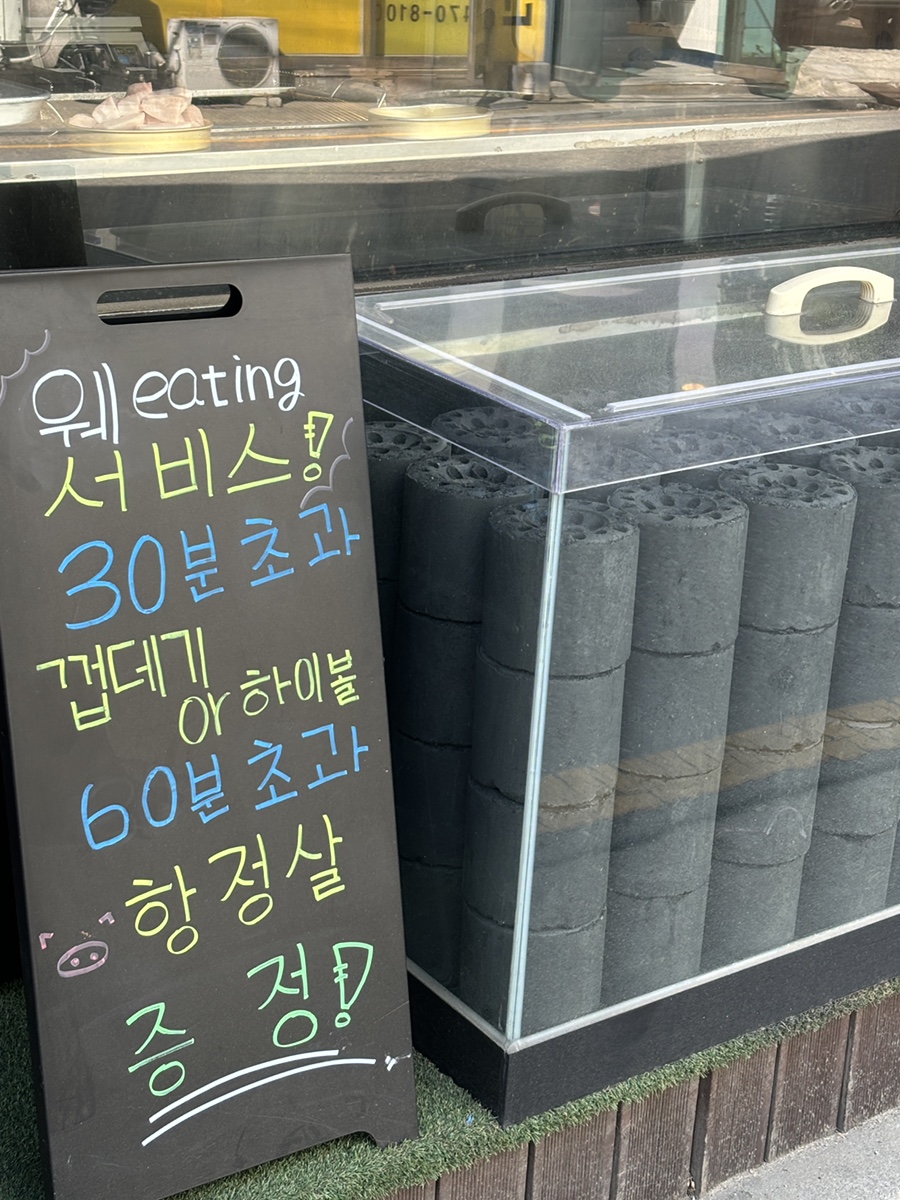 웨eating
서비스!
30분 초과
껍데기
or 하이볼
60분 초과
항정살
증 정!